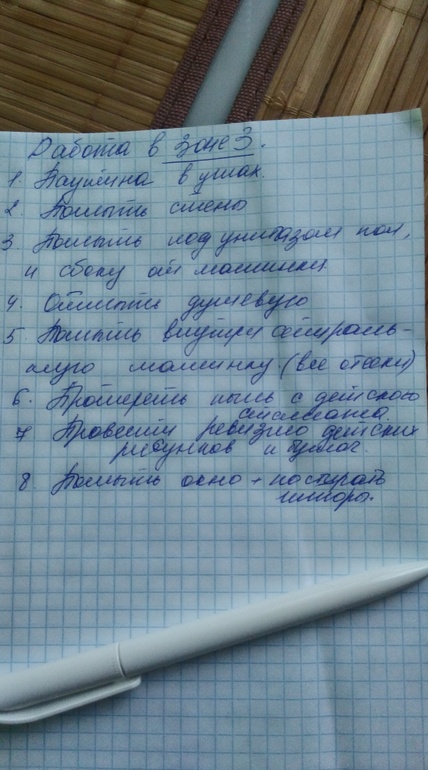 Работа в зоне 3.
1. Паутина в углах.
2. Помыть стены
3. Помыть под унитазом пол,
и сбоку от машинки.
4. Отмыть душевую
5 Помыть внутри стираль-
ную машинку. (все отсеки)
6. Протереть пыль с детского
стеллажа.
7 Провести ревизию детских
рисунков и бумаг.
8. Помыть окно + постирать
шторы.